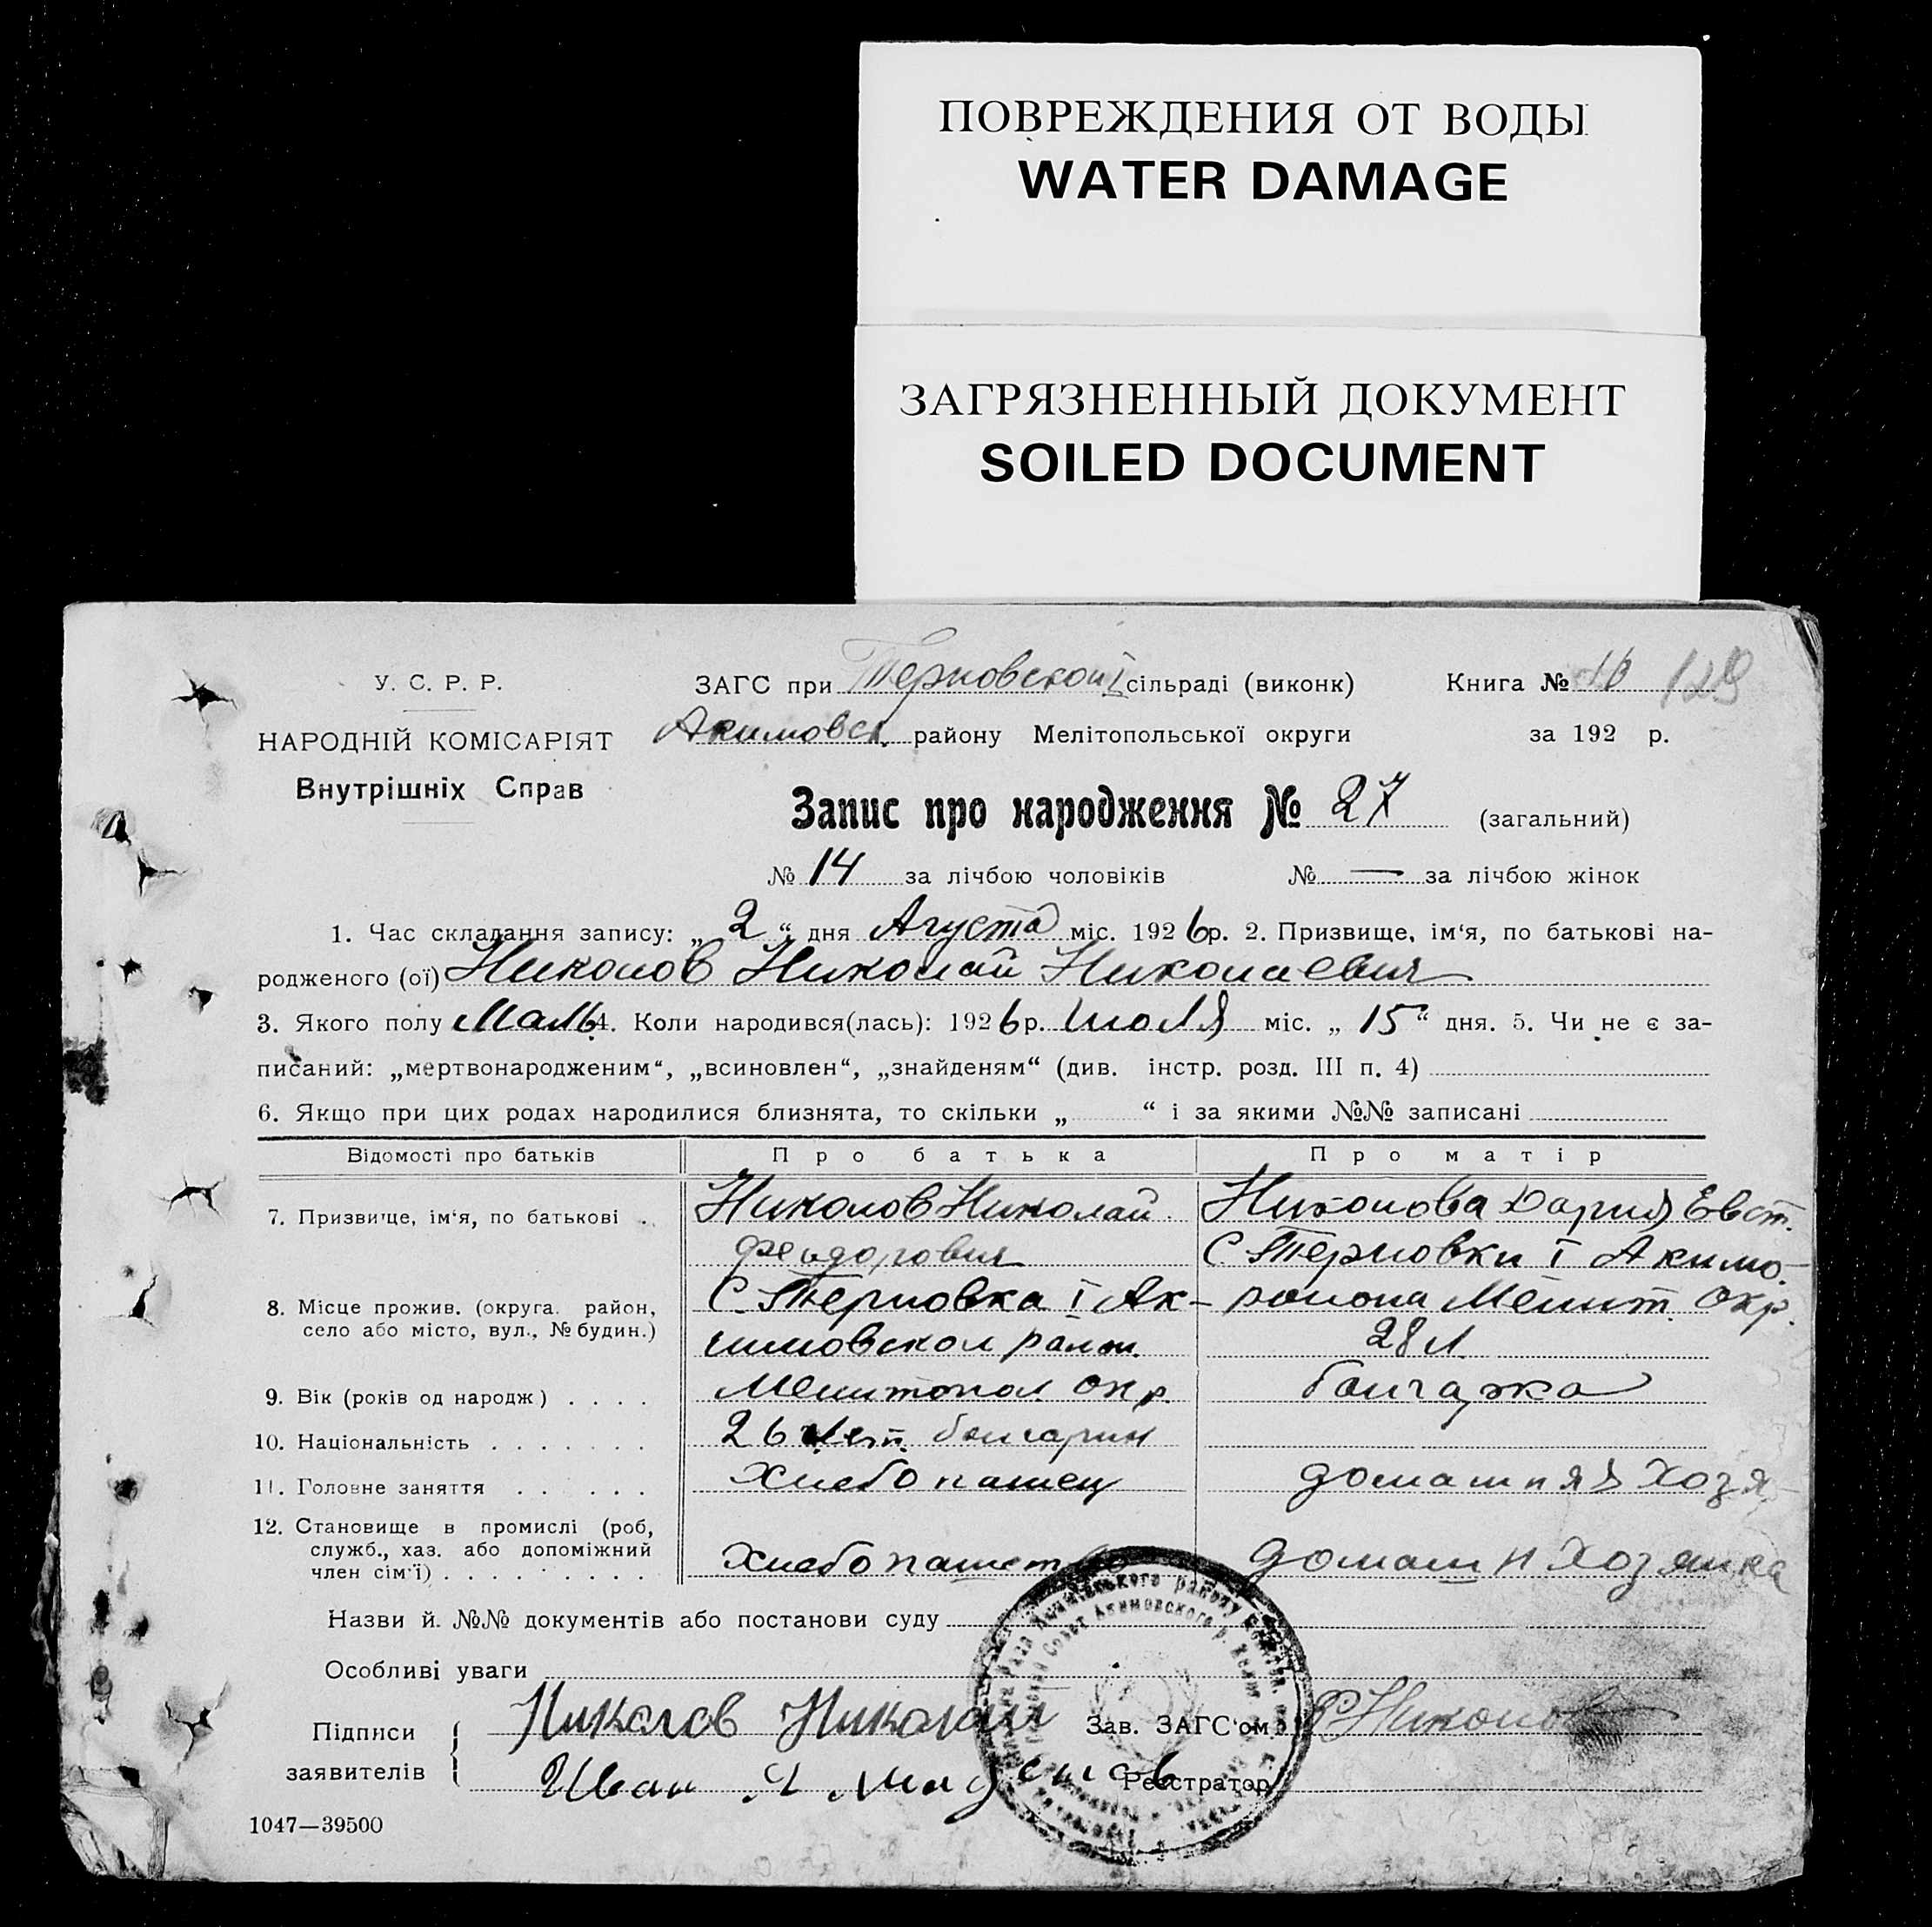 ПОВРЕЖДЕНИЯ ОТ ВОДЫ
WATER DAMAGE
ЗАГРЯЗНЕННЫЙ ДОКУМЕНТ
SOILED DOCUMENT
У. С. Р. Р.
НАРОДНІЙ КОМІСАРІЯТ
Внутрішніх Справ
ЗАГС при Терновской I сільраді (виконк)
Книга № 16 129
Акимовск. району Мелітопольської округи
за 192 р.
Запис про народження № 27 (загальний)
№ 14 за лічбою чоловіків № — за лічбою жінок
1. Час складання запису: „ 2 “ дня Агуста міс. 1926 р. 2. Призвище, ім‘я, по батькові на-
родженого (ої) Николов Николай Николаевич
3. Якого полу Маль. 4. Коли народився(лась): 1926 р. Июля міс. „ 15 “ дня. 5. Чи не є за-
писаний: „мертвонародженим“, „всиновлен“, „знайденям“ (див. інстр. розд. III п. 4)
6. Якщо при цих родах народилися близнята, то скільки „ “ і за якими №№ записані
Відомості про батьків Про батька Про матір
7. Призвище, ім‘я, по батькові . Николов Николай Николова Дария Евст.
Феодорович С. Терновки I Акимо.
8. Місце прожив. (округа. район,
село або місто, вул., № будин.)
С. Терновка I Ак- района Мелит. Окр.
имовской 28 л.
9. Вік (років од народж) . . . . Мелитопол. окр. болгарка
10. Національність . . . . . . . 26 лет. болгарин
11. Головне заняття . . . . . Хлебопашец домашняя Хозя-
12. Становище в промислі (роб,
служб., хаз. або допоміжний
член сім‘ї) . . . . . . . . . .
Хлебопашество домаш н Хозяйка
Назви й. №№ документів або постанови суду
Особливі уваги
Підписи
заявителів
Николов Николай
Зав. ЗАГС‘ом Николов
Иван
Реєстратор
1047—39500